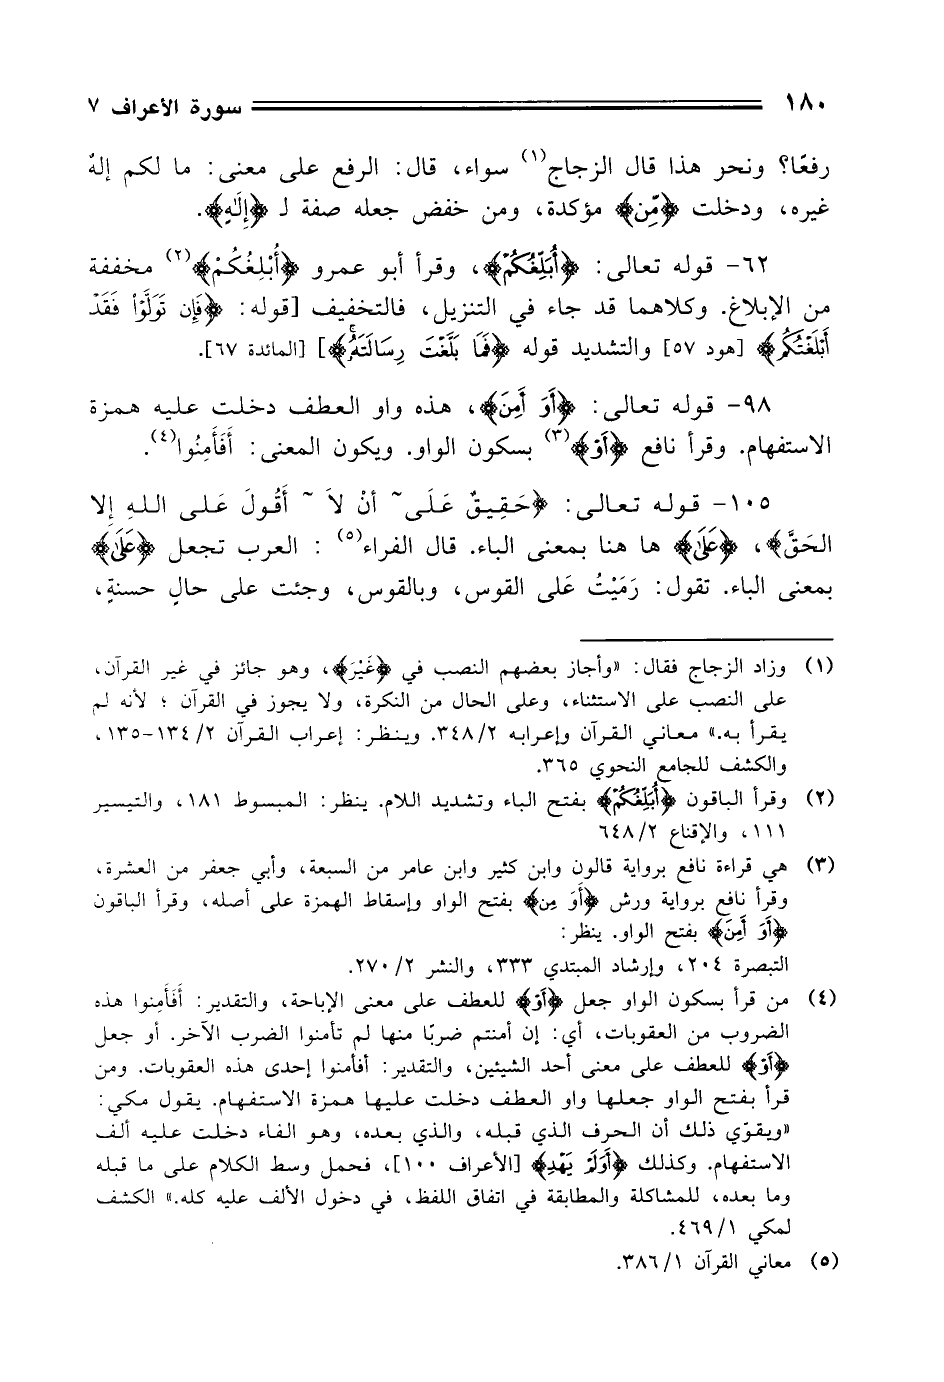 ١٨٠ سورة الأعراف ٧
رفعًا؟ ونحر هذا قال الزجاج(١) سواء، قال: الرفع على معنى: ما لكم إلهٌ
غيره، ودخلت ﴿مِّن﴾ مؤكدة، ومن خفض جعله صفة لـ ﴿إِلَٰهٍ﴾.
٦٢- قوله تعالى: ﴿أُبَلِّغُكُمْ﴾، وقرأ أبو عمرو ﴿أُبْلِغُكُمْ﴾(٢) مخففة
من الإبلاغ. وكلاهما قد جاء في التنزيل، فالتخفيف [قوله: ﴿فَإِن تَوَلَّوْا۟ فَقَدْ
أَبْلَغْتُكُم﴾ [هود ٥٧] والتشديد قوله ﴿فَمَا بَلَّغْتَ رِسَالَتَهُۥ﴾] [المائدة ٦٧].
٩٨- قوله تعالى: ﴿أَوَ أَمِنَ﴾، هذه واو العطف دخلت عليه همزة
الاستفهام. وقرأ نافع ﴿أَوْ﴾(٣) بسكون الواو. ويكون المعنى: أَفَأَمِنُوا(٤).
١٠٥- قوله تعالى: ﴿حَقِيقٌ عَلَى~ أنْ لاَ ~ أَقُولَ عَلى اللهِ إلا
الحَقَّ﴾، ﴿عَلَىٰ﴾ ها هنا بمعنى الباء. قال الفراء(٥) : العرب تجعل ﴿عَلَىٰ﴾
بمعنى الباء. تقول: رَمَيْتُ عَلى القوس، وبالقوس، وجئت على حالٍ حسنةٍ،
(١) وزاد الزجاج فقال: «وأجاز بعضهم النصب في ﴿غَيْرَ﴾، وهو جائز في غير القرآن،
على النصب على الاستثناء، وعلى الحال من النكرة، ولا يجوز في القرآن ؛ لأنه لم
يقرأ به.» معاني القرآن وإعرابه ٣٤٨/٢. وينظر: إعراب القرآن ١٣٤/٢-١٣٥،
والكشف للجامع النحوي ٣٦٥.
(٢) وقرأ الباقون ﴿أُبَلِّغُكُمْ﴾ بفتح الباء وتشديد اللام. ينظر: المبسوط ١٨١، والتيسير
١١١، والإقناع ٦٤٨/٢
(٣) هي قراءة نافع برواية قالون وابن كثير وابن عامر من السبعة، وأبي جعفر من العشرة،
وقرأ نافع برواية ورش ﴿أَوَ مِنَ﴾ بفتح الواو وإسقاط الهمزة على أصله، وقرأ الباقون
﴿أَوَ أَمِنَ﴾ بفتح الواو. ينظر:
التبصرة ٢٠٤، وإرشاد المبتدي ٣٣٣، والنشر ٢٧٠/٢.
(٤) من قرأ بسكون الواو جعل ﴿أَوْ﴾ للعطف على معنى الإباحة، والتقدير: أَفَأَمِنوا هذه
الضروب من العقوبات، أي: إن أمنتم ضربًا منها لم تأمنوا الضرب الآخر. أو جعل
﴿أَوْ﴾ للعطف على معنى أحد الشيئين، والتقدير: أفأمنوا إحدى هذه العقوبات. ومن
قرأ بفتح الواو جعلها واو العطف دخلت عليها همزة الاستفهام. يقول مكي:
«ويقوّي ذلك أن الحرف الذي قبله، والذي بعده، وهو الفاء دخلت عليه ألف
الاستفهام. وكذلك ﴿أَوَلَمْ يَهْدِ﴾ [الأعراف ١٠٠]، فحمل وسط الكلام على ما قبله
وما بعده، للمشاكلة والمطابقة في اتفاق اللفظ، في دخول الألف عليه كله.» الكشف
لمكي ٤٦٩/١.
(٥) معاني القرآن ٣٨٦/١.